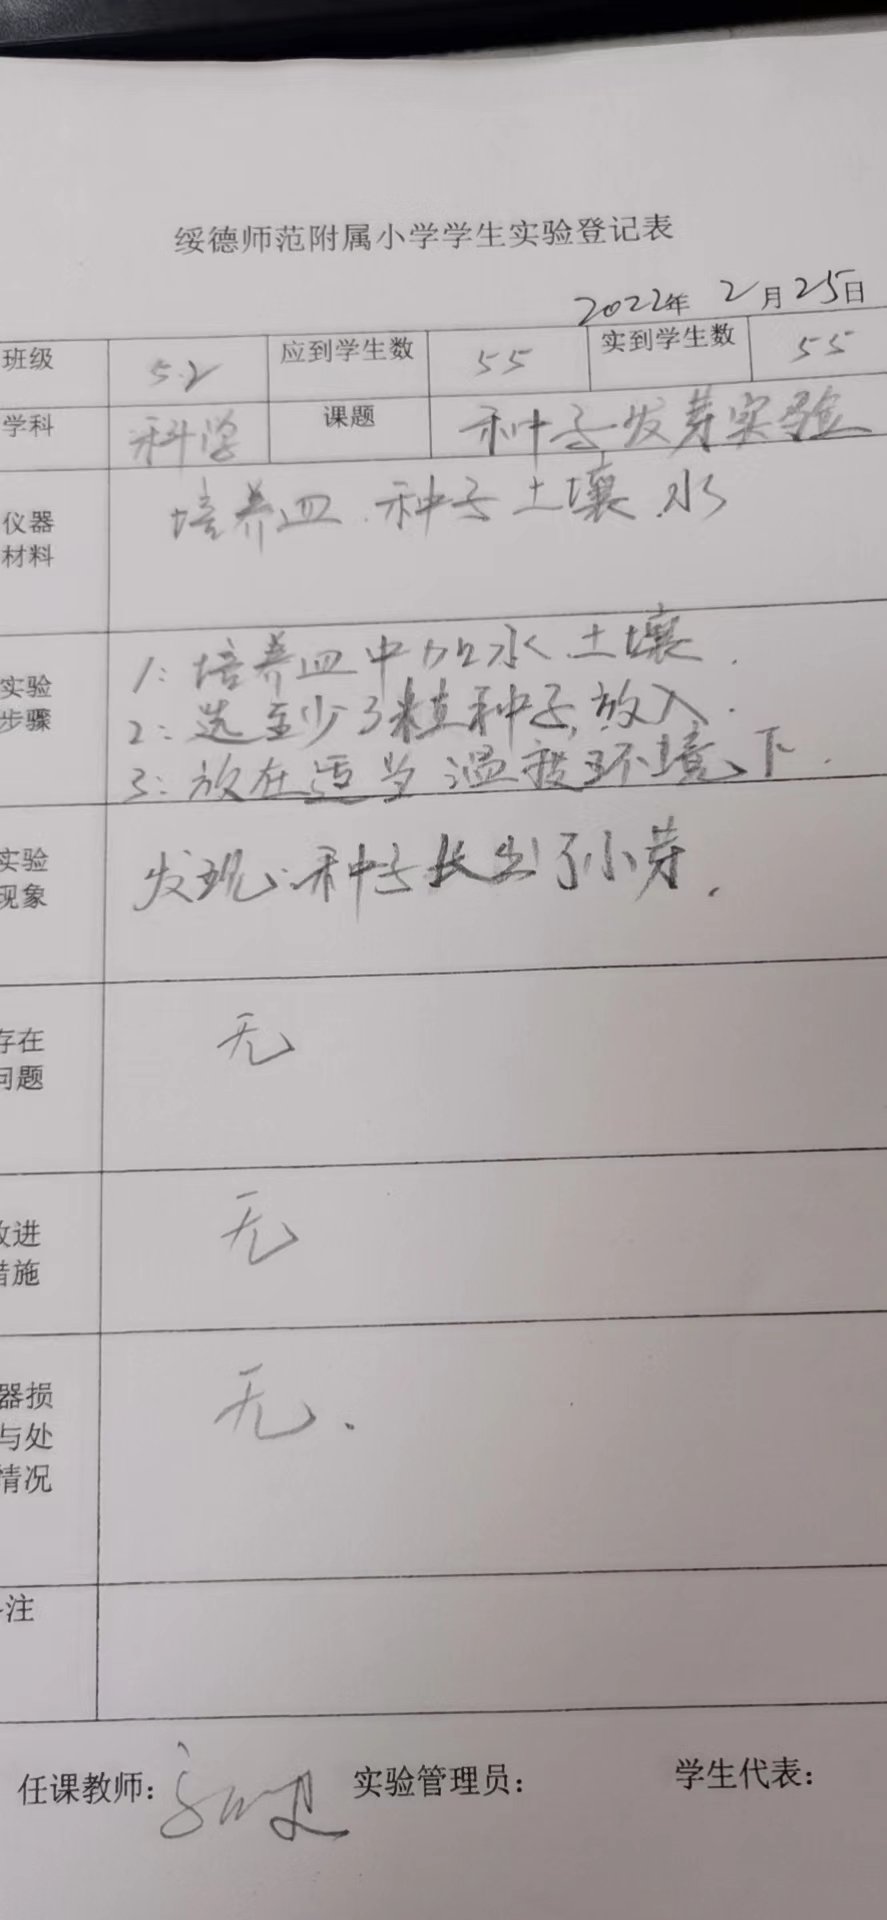 绥德师范附属小学学生实验登记表
2022年 2月25日
班级 5.2 应到学生数 55 实到学生数 55
学科 科学 课题 种子发芽实验
仪器
材料
培养皿.种子 土壤.水
实验
步骤
1:培养皿中加水.土壤.
2:选至少3粒种子,放入.
3:放在适当温度环境下.
实验
现象
发现:种子长出了小芽.
存在
问题
无
改进
措施
无
器损
与处
情况
无.
注
任课教师: 实验管理员: 学生代表: